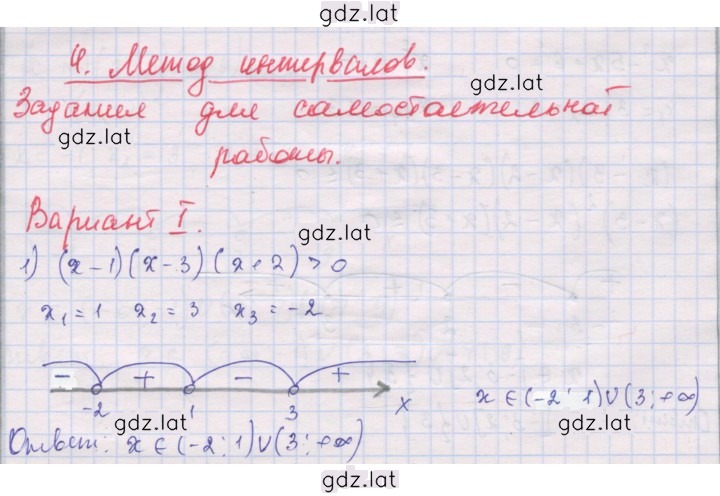 gdz.lat
4. Метод интервалов.
gdz.lat
Задания для самостоятельной
gdz.lat
работы.
gdz.lat
Вариант I.
gdz.lat
1) (x-1)(x-3)(x+2)>0
x₁=1 x₂=3 x₃=-2
− + − +
-2 1 3 x
x ∈ (-2; 1) ∪ (3; +∞)
gdz.lat
gdz.lat
Ответ: x ∈ (-2; 1) ∪ (3; +∞)
gdz.lat